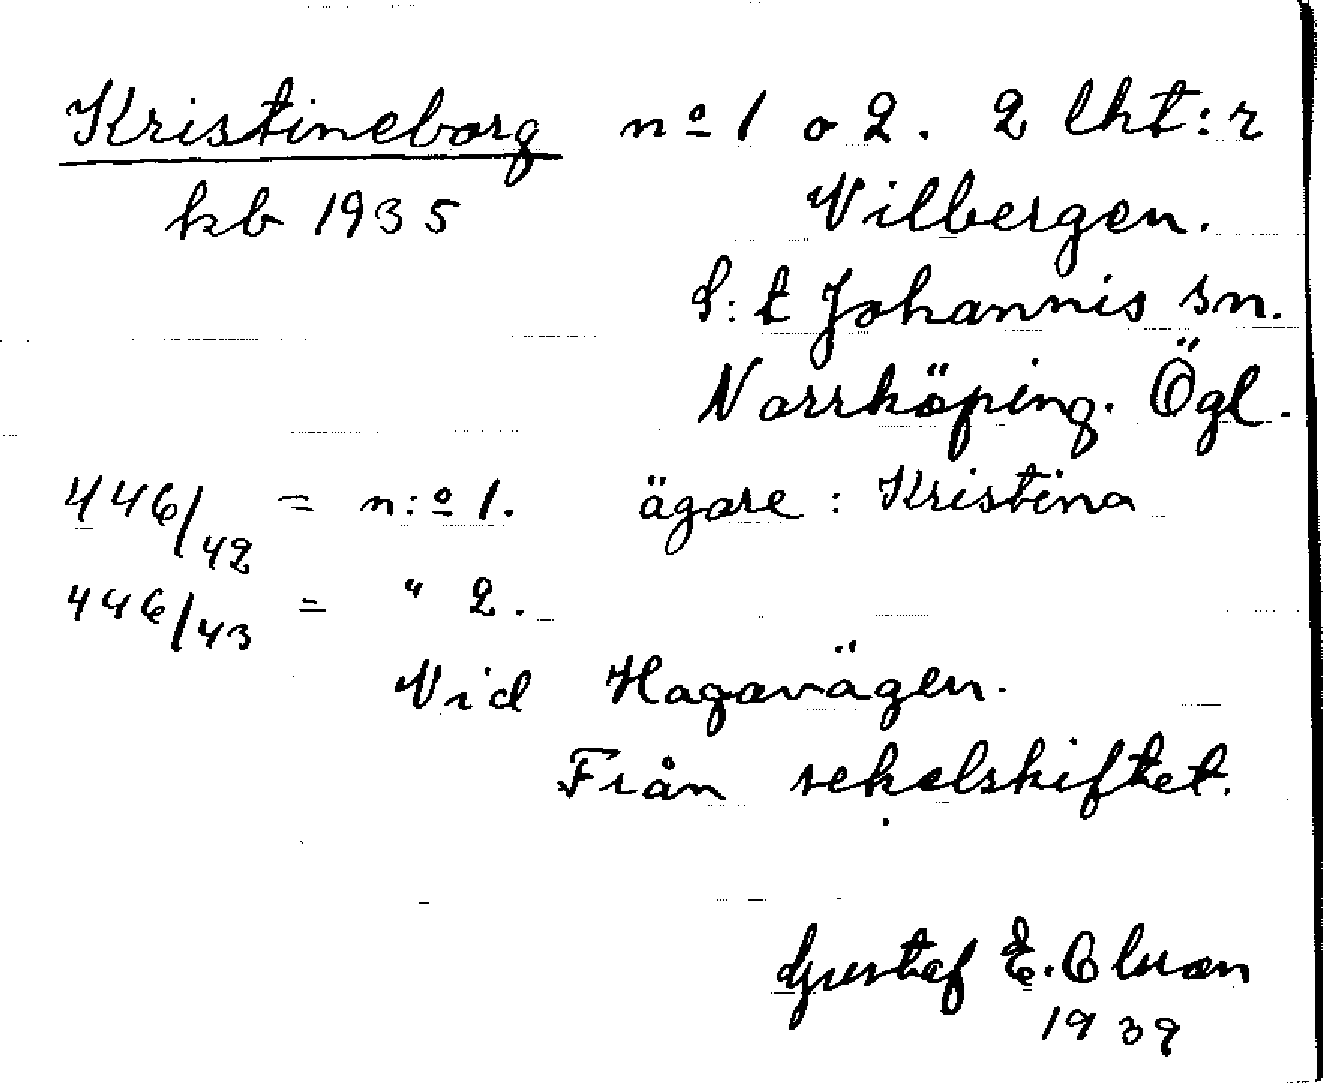 Kristineborg n:o 1 o 2. 2 lht:r
kb 1935 Vilbergen.
S:t Johannis sn.
Norrköping. Ögl.
446/42 = n:o 1. ägare: Kristina
446/43 = " 2.
Vid Hagavägen.
Från sekelskiftet.
Gustaf E. Olsson
1939